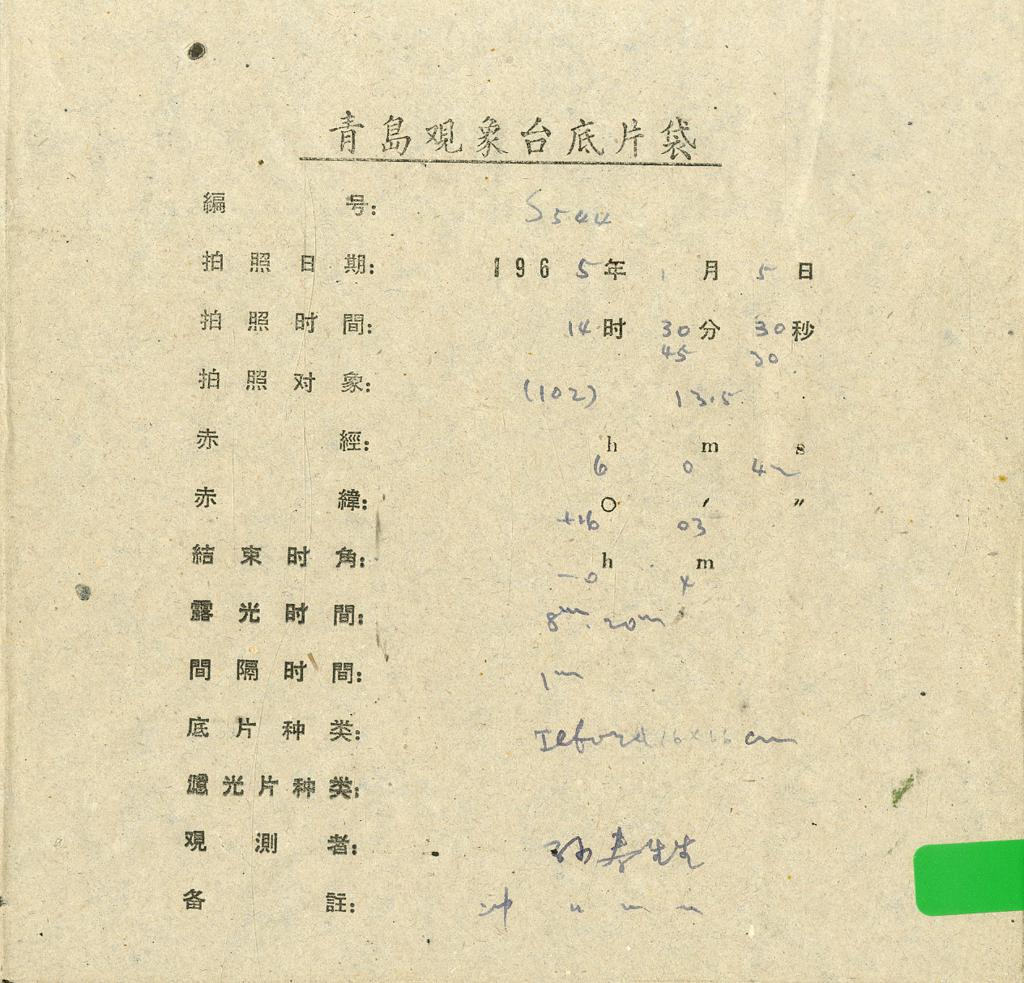 青島观象台底片袋
編号: S544
拍照日期: 1965年 1月 5日
拍照时間: 14时 30分 30秒
45 30
拍照对象: (102) 13.5
赤經: h m s
6 0 42
赤緯: ○ ′ ″
+16 03
結束时角: h m
-0 4
露光时間: 8m. 20m
間隔时間: 1m
底片种类: Ilford 16×16 cm
濾光片种类:
观測者: 孙寿
备註: 冲 〃